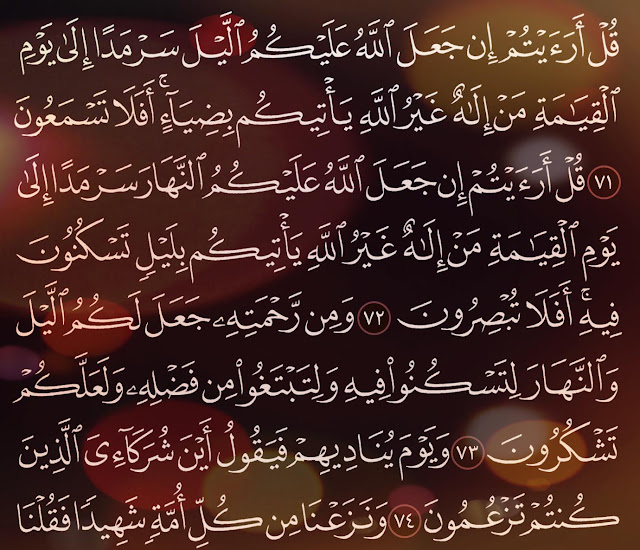 قُلْ أَرَءَيْتُمْ إِن جَعَلَ ٱللَّهُ عَلَيْكُمُ ٱلَّيْلَ سَرْمَدًا إِلَىٰ يَوْمِ
ٱلْقِيَٰمَةِ مَنْ إِلَٰهٌ غَيْرُ ٱللَّهِ يَأْتِيكُم بِضِيَآءٍ ۚ أَفَلَا تَسْمَعُونَ
٧١ قُلْ أَرَءَيْتُمْ إِن جَعَلَ ٱللَّهُ عَلَيْكُمُ ٱلنَّهَارَ سَرْمَدًا إِلَىٰ
يَوْمِ ٱلْقِيَٰمَةِ مَنْ إِلَٰهٌ غَيْرُ ٱللَّهِ يَأْتِيكُم بِلَيْلٍ تَسْكُنُونَ
فِيهِ ۚ أَفَلَا تُبْصِرُونَ ٧٢ وَمِن رَّحْمَتِهِۦ جَعَلَ لَكُمُ ٱلَّيْلَ
وَٱلنَّهَارَ لِتَسْكُنُوا۟ فِيهِ وَلِتَبْتَغُوا۟ مِن فَضْلِهِۦ وَلَعَلَّكُمْ
تَشْكُرُونَ ٧٣ وَيَوْمَ يُنَادِيهِمْ فَيَقُولُ أَيْنَ شُرَكَآءِىَ ٱلَّذِينَ
كُنتُمْ تَزْعُمُونَ ٧٤ وَنَزَعْنَا مِن كُلِّ أُمَّةٍ شَهِيدًا فَقُلْنَا